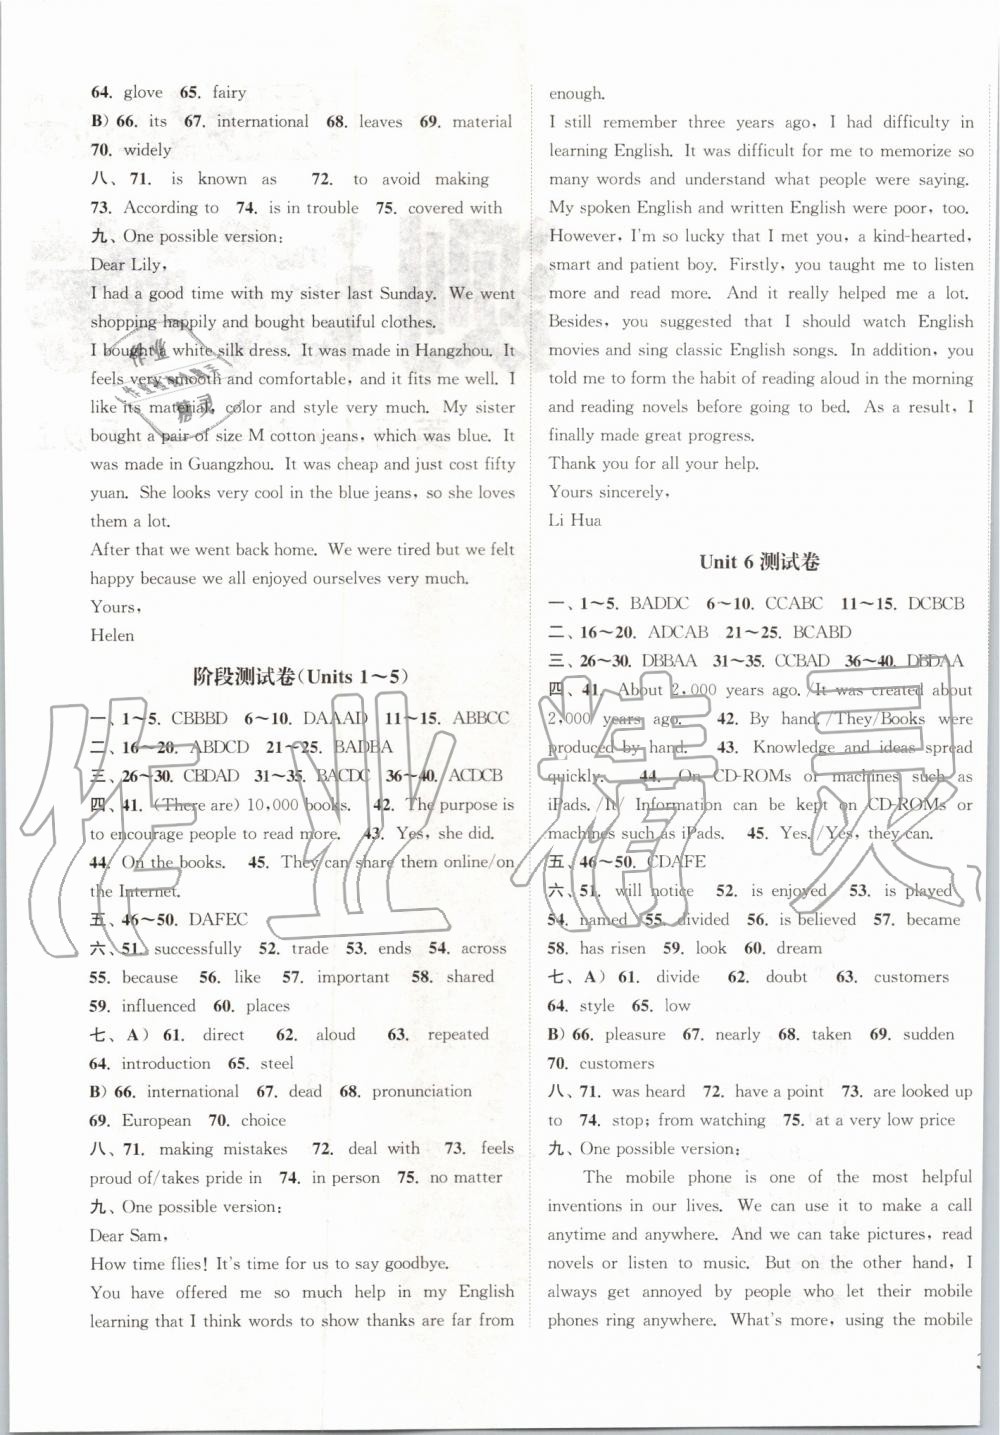 64. glove 65. fairy
B) 66. its 67. international 68. leaves 69. material
70. widely
八、71. is known as 72. to avoid making
73. According to 74. is in trouble 75. covered with
九、One possible version:
Dear Lily,
I had a good time with my sister last Sunday. We went
shopping happily and bought beautiful clothes.
I bought a white silk dress. It was made in Hangzhou. It
feels very smooth and comfortable, and it fits me well. I
like its material, color and style very much. My sister
bought a pair of size M cotton jeans, which was blue. It
was made in Guangzhou. It was cheap and just cost fifty
yuan. She looks very cool in the blue jeans, so she loves
them a lot.
After that we went back home. We were tired but we felt
happy because we all enjoyed ourselves very much.
Yours,
Helen
阶段测试卷(Units 1～5)
一、1～5. CBBBD 6～10. DAAAD 11～15. ABBCC
二、16～20. ABDCD 21～25. BADBA
三、26～30. CBDAD 31～35. BACDC 36～40. ACDCB
四、41. (There are) 10,000 books. 42. The purpose is
to encourage people to read more. 43. Yes, she did.
44. On the books. 45. They can share them online/on
the Internet.
五、46～50. DAFEC
六、51. successfully 52. trade 53. ends 54. across
55. because 56. like 57. important 58. shared
59. influenced 60. places
七、A) 61. direct 62. aloud 63. repeated
64. introduction 65. steel
B) 66. international 67. dead 68. pronunciation
69. European 70. choice
八、71. making mistakes 72. deal with 73. feels
proud of/takes pride in 74. in person 75. no matter
九、One possible version:
Dear Sam,
How time flies! It's time for us to say goodbye.
You have offered me so much help in my English
learning that I think words to show thanks are far from
enough.
I still remember three years ago, I had difficulty in
learning English. It was difficult for me to memorize so
many words and understand what people were saying.
My spoken English and written English were poor, too.
However, I'm so lucky that I met you, a kind-hearted,
smart and patient boy. Firstly, you taught me to listen
more and read more. And it really helped me a lot.
Besides, you suggested that I should watch English
movies and sing classic English songs. In addition, you
told me to form the habit of reading aloud in the morning
and reading novels before going to bed. As a result, I
finally made great progress.
Thank you for all your help.
Yours sincerely,
Li Hua
Unit 6 测试卷
一、1～5. BADDC 6～10. CCABC 11～15. DCBCB
二、16～20. ADCAB 21～25. BCABD
三、26～30. DBBAA 31～35. CCBAD 36～40. DBDAA
四、41. About 2,000 years ago./It was created about
2,000 years ago. 42. By hand./They/Books were
produced by hand. 43. Knowledge and ideas spread
quickly. 44. On CD-ROMs or machines such as
iPads./It/ Information can be kept on CD-ROMs or
machines such as iPads. 45. Yes./Yes, they can.
五、46～50. CDAFE
六、51. will notice 52. is enjoyed 53. is played
54. named 55. divided 56. is believed 57. became
58. has risen 59. look 60. dream
七、A) 61. divide 62. doubt 63. customers
64. style 65. low
B) 66. pleasure 67. nearly 68. taken 69. sudden
70. customers
八、71. was heard 72. have a point 73. are looked up
to 74. stop; from watching 75. at a very low price
九、One possible version:
The mobile phone is one of the most helpful
inventions in our lives. We can use it to make a call
anytime and anywhere. And we can take pictures, read
novels or listen to music. But on the other hand, I
always get annoyed by people who let their mobile
phones ring anywhere. What's more, using the mobile
作业精灵